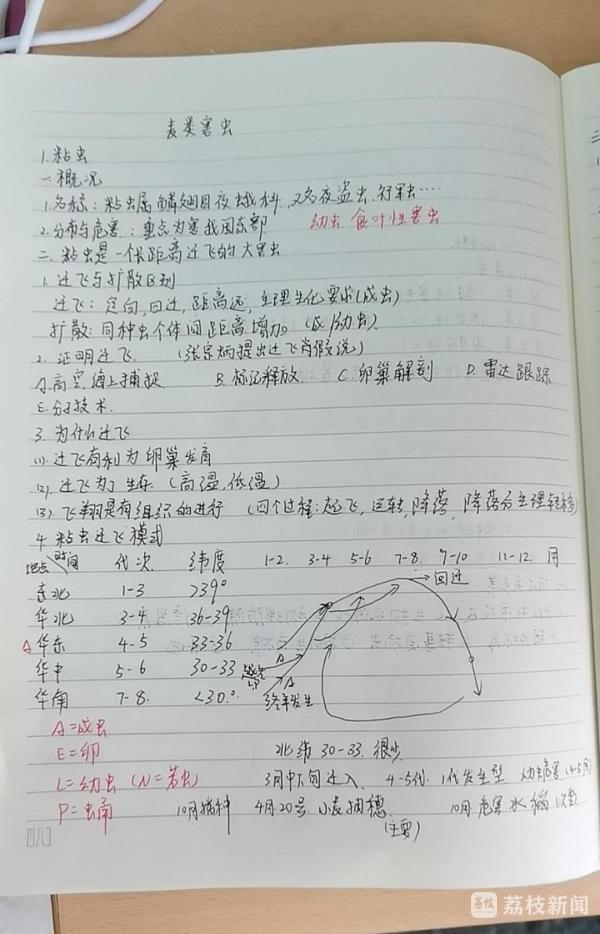 麦类害虫
1.粘虫
一.概况
1.名称：粘虫属鳞翅目夜蛾科，又名夜盗虫、行军虫……
2.分布与危害：重点为害我国东部 幼虫 食叶性害虫
二.粘虫是一个长距离迁飞的大害虫
1.迁飞与扩散区别
迁飞：定向，回迁，距离远，生理生化要求(成虫)
扩散：同种虫个体间距离增加。(成/幼虫)
2.证明迁飞 (张宗炳提出迁飞者假说)
A.高空、海上捕捉 B.标记释放 C.卵巢解剖 D.雷达跟踪
E.分子技术.
3.为什么迁飞
(1).迁飞有利为卵巢发育
(2).迁飞为了生存(高温、低温)
(3)飞翔是有组织的进行 (四个过程：起飞，运转，降落，降落后生理转移)
4.粘虫迁飞模式
地点\时间 代次 纬度 1-2. 3-4 5-6 7-8. 9-10 11-12. 月
东北 1-3 >39° 回迁
华北 3-4 36-39
△华东 4-5 33-36
华中 5-6 30-33 越冬
华南 7-8. <30.° 终年发生
A=成虫
E=卵 北纬30-33.很少
L=幼虫(N=若虫) 3月中下旬迁入. 4-5代. 1代发生型 幼虫危害(4-5月)
P=蛹 10月播种 4月20号.小麦抽穗 10月.危害水稻1次数
(主要)
荔枝 荔枝新闻